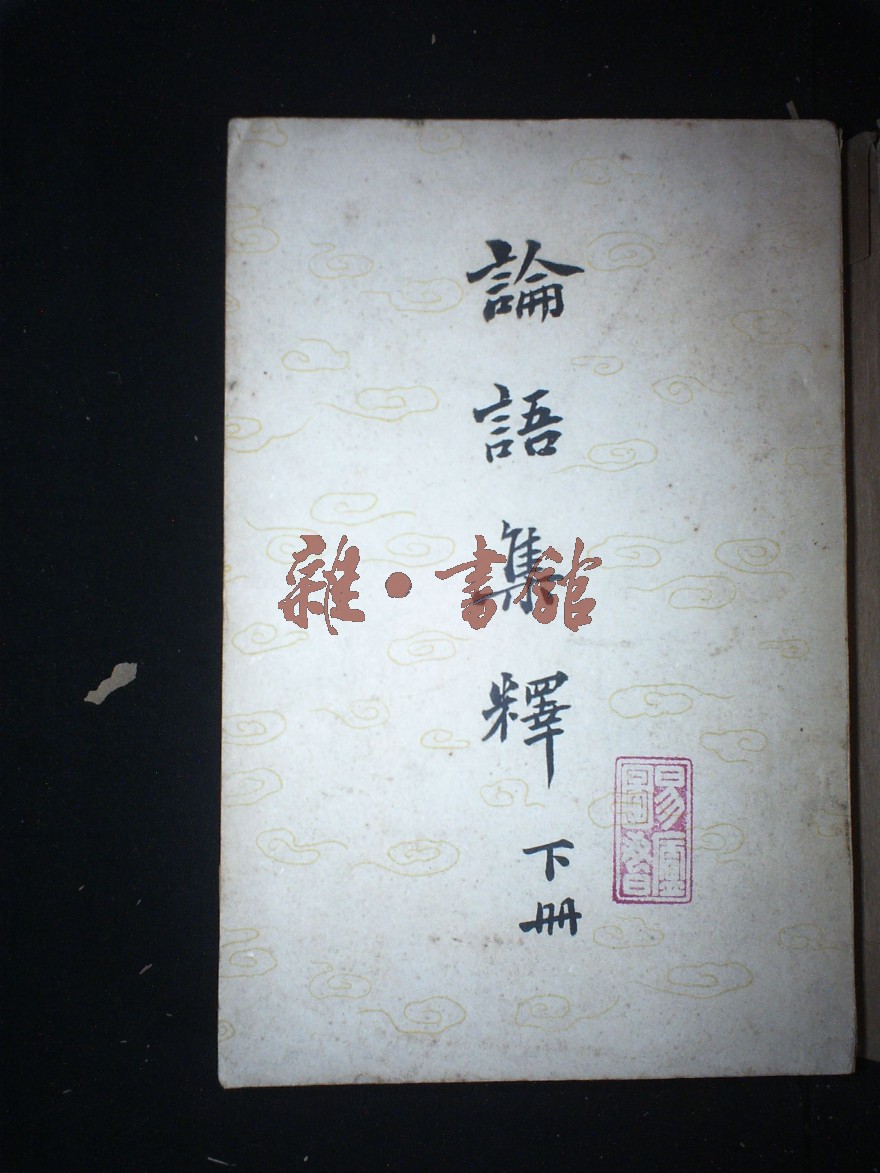 論語集釋
下册
雜·書館